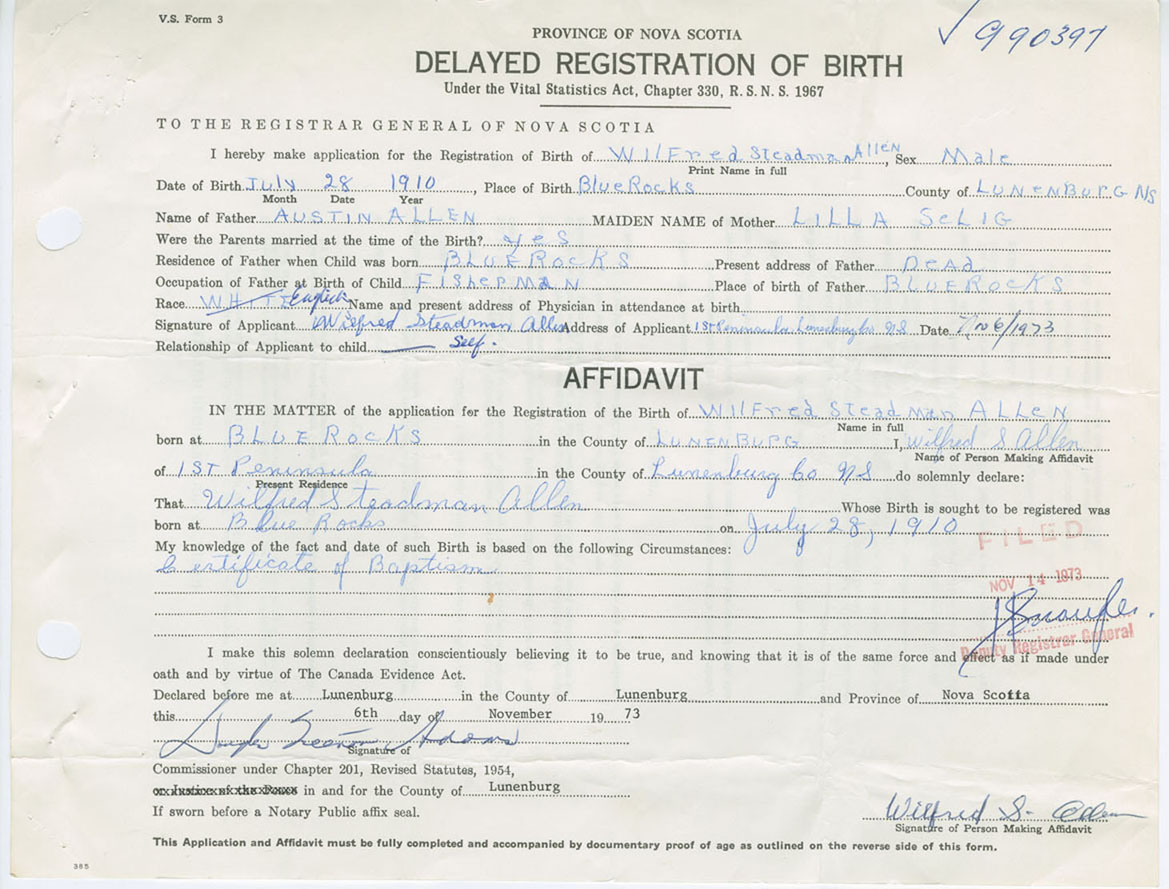 V.S. Form 3
990397
PROVINCE OF NOVA SCOTIA
DELAYED REGISTRATION OF BIRTH
Under the Vital Statistics Act, Chapter 330, R.S.N.S. 1967
TO THE REGISTRAR GENERAL OF NOVA SCOTIA
I hereby make application for the Registration of Birth of Wilfred Steadman Allen, Sex Male
Print Name in full
Date of Birth July 28 1910, Place of Birth Blue Rocks County of LUNENBURG NS
Month Date Year
Name of Father AUSTIN ALLEN MAIDEN NAME of Mother LILLA SELIG
Were the Parents married at the time of the Birth? yes
Residence of Father when Child was born BLUE ROCKS Present address of Father Dead
Occupation of Father at Birth of Child FISHERMAN Place of birth of Father BLUE ROCKS
Race WHITE English Name and present address of Physician in attendance at birth
Signature of Applicant Wilfred Steadman Allen Address of Applicant 1st Peninsula Lunenburg Co. N.S. Date Nov 6/1973
Relationship of Applicant to child Self.
AFFIDAVIT
IN THE MATTER of the application for the Registration of the Birth of Wilfred Steadman ALLEN
Name in full
born at BLUE ROCKS in the County of LUNENBURG I, Wilfred S Allen
Name of Person Making Affidavit
of 1ST Peninsula in the County of Lunenburg Co N.S do solemnly declare:
Present Residence
That Wilfred Steadman Allen Whose Birth is sought to be registered was
born at Blue Rocks on July 28, 1910
FILED
My knowledge of the fact and date of such Birth is based on the following Circumstances:
Certificate of Baptism
NOV 14 1973
Deputy Registrar General
I make this solemn declaration conscientiously believing it to be true, and knowing that it is of the same force and effect as if made under
oath and by virtue of The Canada Evidence Act.
Declared before me at Lunenburg in the County of Lunenburg and Province of Nova Scotia
this 6th day of November 19 73
Signature of
Commissioner under Chapter 201, Revised Statutes, 1954,
or Justice of the Peace in and for the County of Lunenburg
If sworn before a Notary Public affix seal.
Wilfred S. Allen
Signature of Person Making Affidavit
This Application and Affidavit must be fully completed and accompanied by documentary proof of age as outlined on the reverse side of this form.
385